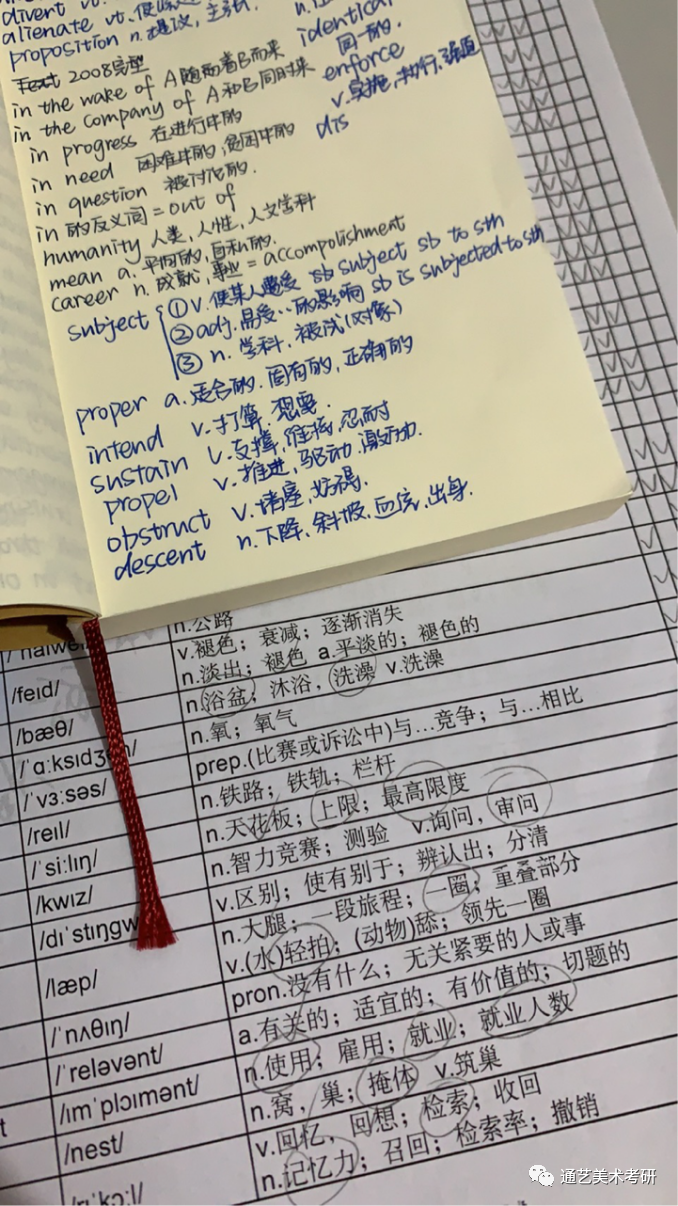 divert vt.
alienate vt. 使疏远
proposition n. 提议, 主张.
Text 2008完型
in the wake of A随着B而来
in the company of A和B同时来
in progress 在进行中的
in need 困难中的, 贫困中的
in question 被讨论的.
in 的反义词 = out of
humanity 人类, 人性, 人文学科
mean a. 平均的, 自私的.
career n. 成就, 事业 = accompolishment
subject ①v. 使某人遭受 sb subject sb to sth
②adj. 易受..的影响 sb is subjected to sth
③ n. 学科, 被试(对象)
proper a. 适合的, 固有的, 正确的
intend v. 打算, 想要
sustain v. 支撑, 维持, 忍耐
propel v. 推进, 驱动, 激励.
obstruct v. 堵塞, 妨碍.
descent n. 下降, 斜坡, 血统, 出身.
identical
同一的.
enforce
v. 实施, 执行, 强迫
dis
n.公路
/feɪd/ v.褪色；衰减；逐渐消失
n.淡出；褪色 a.平淡的；褪色的
/bæθ/ n.浴盆；沐浴，洗澡 v.洗澡
n.氧；氧气
/ˈvɜːsəs/ prep.(比赛或诉讼中)与…竞争；与…相比
/reɪl/ n.铁路；铁轨；栏杆
/ˈsiːlɪŋ/ n.天花板；上限；最高限度
/kwɪz/ n.智力竞赛；测验 v.询问，审问
/dɪˈstɪŋɡw v.区别；使有别于；辨认出；分清
/læp/ n.大腿；一段旅程；一圈；重叠部分
v.(水)轻拍；(动物)舔；领先一圈
/ˈnʌθɪŋ/ pron.没有什么；无关紧要的人或事
/ˈreləvənt/ a.有关的；适宜的；有价值的；切题的
/ɪmˈplɔɪmənt/ n.使用；雇用；就业；就业人数
/nest/ n.窝，巢；掩体 v.筑巢
v.回忆，回想；检索；收回
n.记忆力；召回；检索率；撤销
通艺美术考研